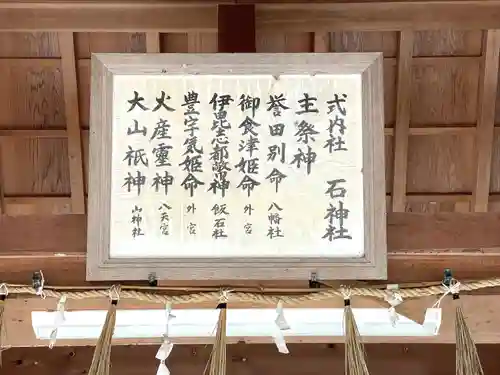 式内社 石神社
主祭神
誉田別命 八幡社
御食津姫命 外宮
伊毘志都幣命神 飯石社
豊宇気姫命 外宮
火産霊神 八天宮
大山祇神 山神社